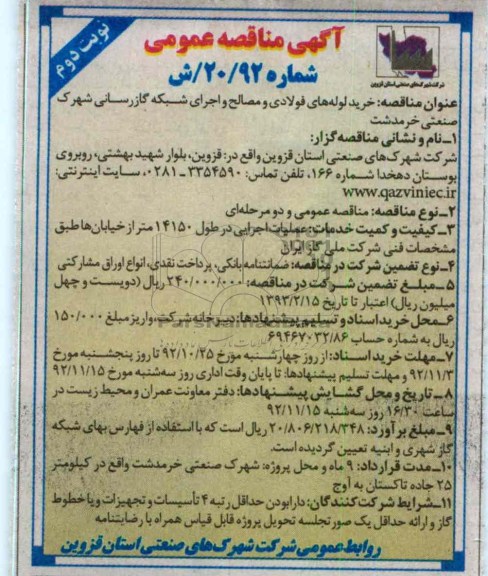 نوبت دوم
آگهی مناقصه عمومی
شماره ۲۰/۹۲/ش
شرکت شهرک‌های صنعتی استان قزوین
عنوان مناقصه: خرید لوله‌های فولادی و مصالح و اجرای شبکه گازرسانی شهرک
صنعتی خرمدشت
۱ـ نام و نشانی مناقصه‌گزار:
شرکت شهرک‌های صنعتی استان قزوین واقع در: قزوین، بلوار شهید بهشتی، روبروی
بوستان دهخدا شماره ۱۶۶، تلفن تماس: ۳۳۵۴۵۹۰ـ۰۲۸۱، سایت اینترنتی:
www.qazviniec.ir
۲ـ نوع مناقصه: مناقصه عمومی و دو مرحله‌ای
۳ـ کیفیت و کمیت خدمات: عملیات اجرایی در طول ۱۴۱۵۰ متر از خیابان‌ها طبق
مشخصات فنی شرکت ملی گاز ایران
۴ـ نوع تضمین شرکت در مناقصه: ضمانتنامه بانکی، پرداخت نقدی، انواع اوراق مشارکتی
۵ـ مبلغ تضمین شرکت در مناقصه: ۲۴۰/۰۰۰/۰۰۰ ریال (دویست و چهل
میلیون ریال) اعتبار تا تاریخ ۱۳۹۳/۲/۱۵
۶ـ محل خرید اسناد و تسلیم پیشنهادها: دبیرخانه شرکت، واریز مبلغ ۱۵۰/۰۰۰
ریال به شماره حساب ۶۹۴۶۷۰۳۲/۸۶
۷ـ مهلت خرید اسناد: از روز چهارشنبه مورخ ۹۲/۱۰/۲۵ تا روز پنجشنبه مورخ
۹۲/۱۱/۳ و مهلت تسلیم پیشنهادها: تا پایان وقت اداری روز سه‌شنبه مورخ ۹۲/۱۱/۱۵
۸ـ تاریخ و محل گشایش پیشنهادها: دفتر معاونت عمران و محیط زیست در
ساعت ۱۶/۳۰ روز سه‌شنبه ۹۲/۱۱/۱۵
۹ـ مبلغ برآورد: ۲۰/۸۰۶/۲۱۸/۳۴۸ ریال است که با استفاده از فهارس بهای شبکه
گاز شهری و ابنیه تعیین گردیده است.
۱۰ـ مدت قرارداد: ۹ ماه و محل پروژه: شهرک صنعتی خرمدشت واقع در کیلومتر
۲۵ جاده تاکستان به آوج
۱۱ـ شرایط شرکت‌کنندگان: دارا بودن حداقل رتبه ۴ تأسیسات و تجهیزات و یا خطوط
گاز و ارائه حداقل یک صورتجلسه تحویل پروژه قابل قیاس همراه با رضایتنامه
روابط عمومی شرکت شهرک‌های صنعتی استان قزوین